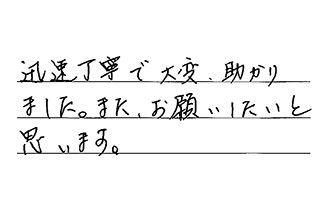 迅速丁寧で大変、助かり
ました。また、お願いしたいと
思います。